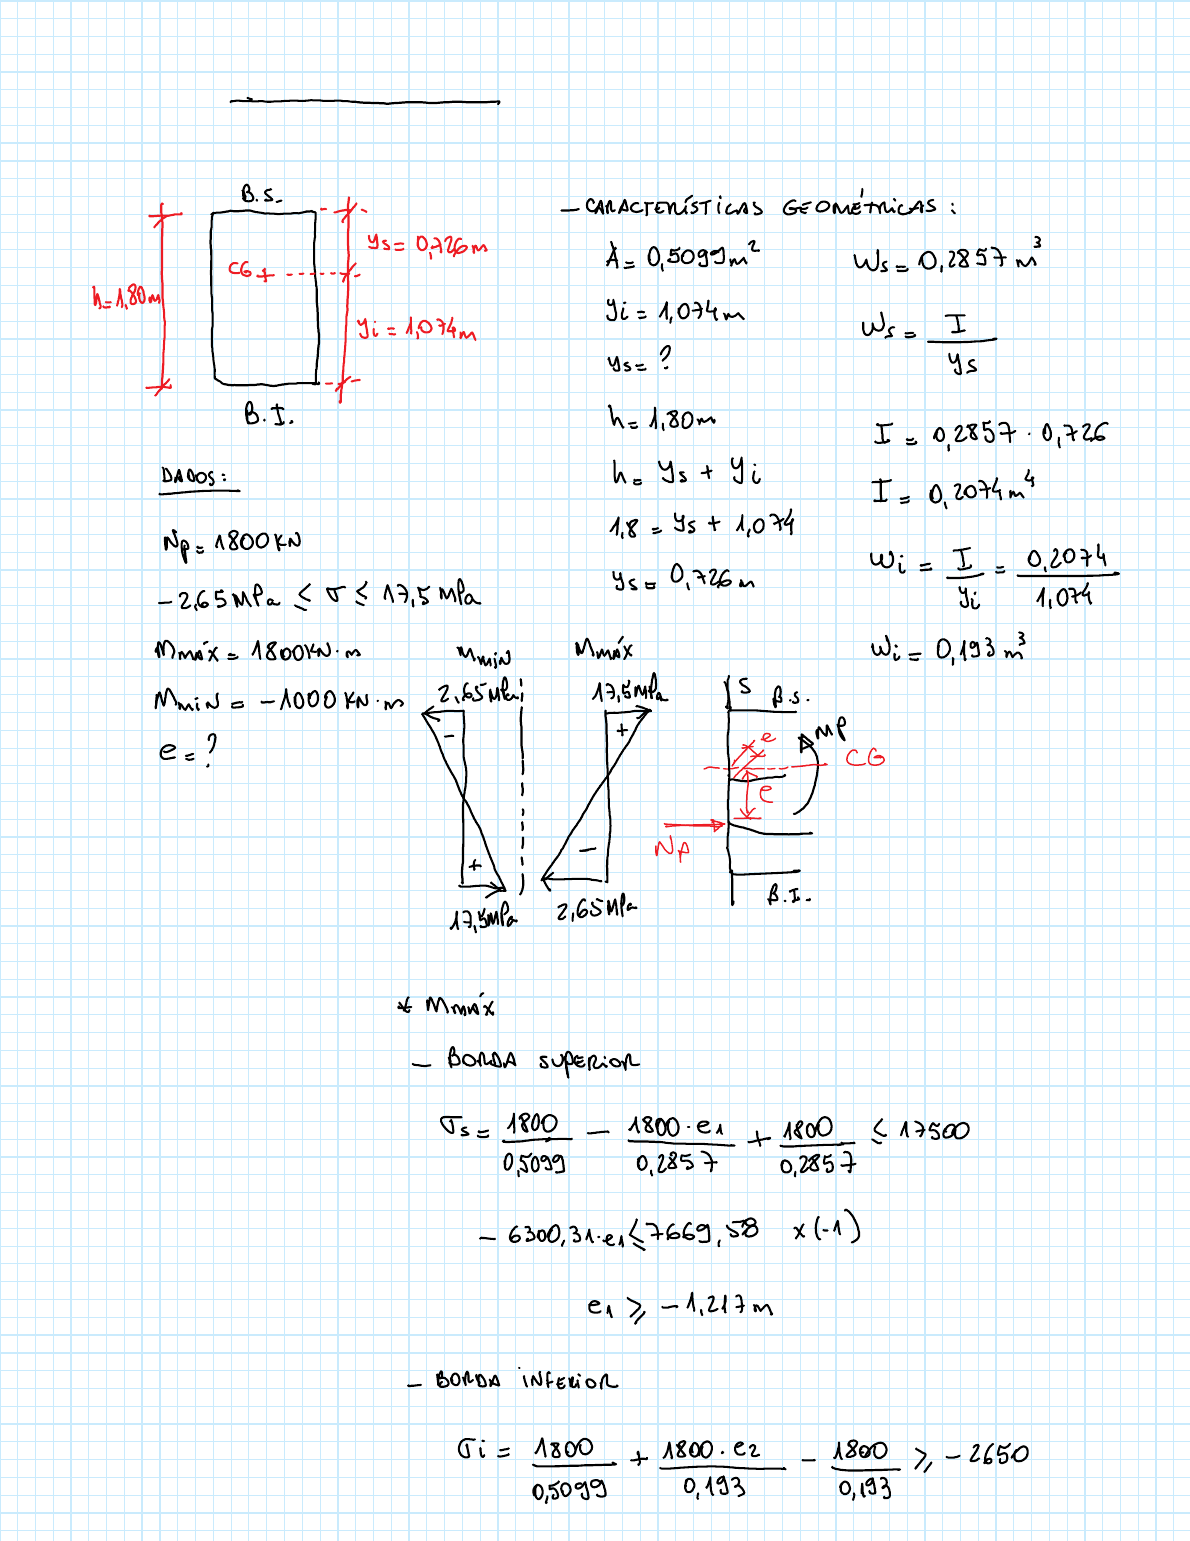 B.S.
h=1,80m
CG
ys= 0,726m
yi = 1,074m
B.I.
DADOS:
Np = 1800KN
-2,65MPa ≤ σ ≤ 17,5MPa
Mmáx = 1800KN·m
Mmin = -1000KN·m
e = ?
- CARACTERÍSTICAS GEOMÉTRICAS:
A = 0,5099m²
yi = 1,074m
ys = ?
h = 1,80m
h = ys + yi
1,8 = ys + 1,074
ys = 0,726m
Ws = 0,2857m³
Ws = I / ys
I = 0,2857 · 0,726
I = 0,2074m⁴
Wi = I / yi = 0,2074 / 1,074
Wi = 0,193m³
Mmin
2,65MPa
-
+
17,5MPa
Mmáx
17,5MPa
+
-
2,65MPa
S
B.S.
e
MP
CG
e
Np
B.I.
* Mmáx
- BORDA SUPERIOR
σs = 1800 / 0,5099 - 1800·e1 / 0,2857 + 1800 / 0,2857 ≤ 17500
- 6300,31·e1 ≤ 7669,58 x(-1)
e1 ≥ -1,217m
- BORDA INFERIOR
σi = 1800 / 0,5099 + 1800·e2 / 0,193 - 1800 / 0,193 ≥ -2650